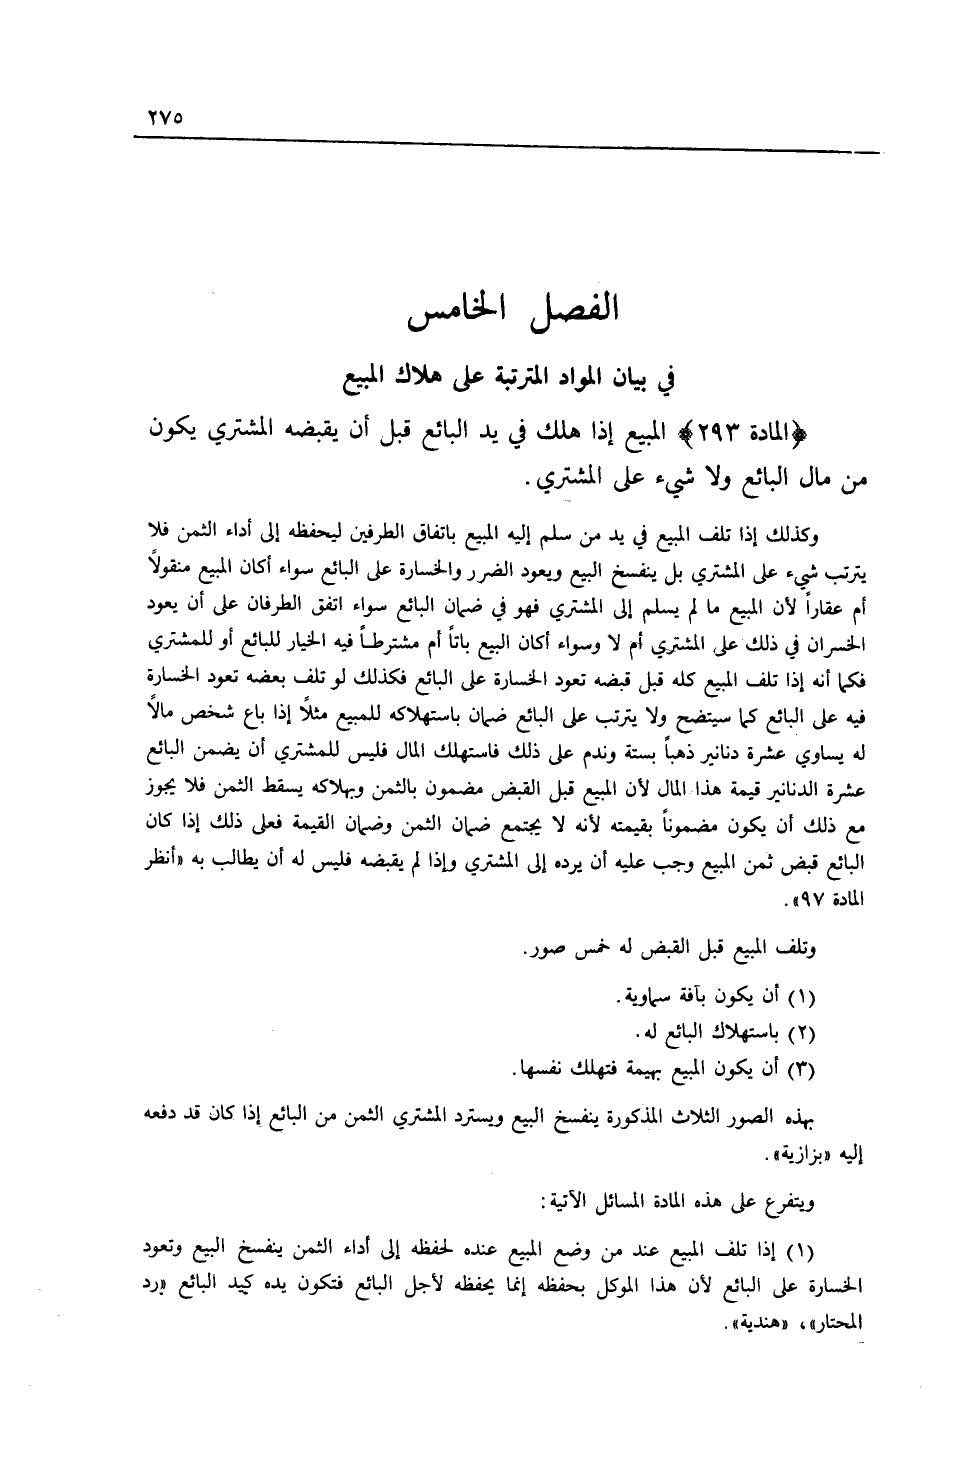 ٢٧٥
الفصل الخامس
في بيان المواد المترتبة على هلاك المبيع
﴿المادة ٢٩٣﴾ المبيع إذا هلك في يد البائع قبل أن يقبضه المشتري يكون
من مال البائع ولا شيء على المشتري.
وكذلك إذا تلف المبيع في يد من سلم إليه المبيع باتفاق الطرفين ليحفظه إلى أداء الثمن فلا
يترتب شيء على المشتري بل ينفسخ البيع ويعود الضرر والخسارة على البائع سواء أكان المبيع منقولاً
أم عقاراً لأن المبيع ما لم يسلم إلى المشتري فهو في ضمان البائع سواء اتفق الطرفان على أن يعود
الخسران في ذلك على المشتري أم لا وسواء أكان البيع باتاً أم مشترطاً فيه الخيار للبائع أو للمشتري
فكما أنه إذا تلف المبيع كله قبل قبضه تعود الخسارة على البائع فكذلك لو تلف بعضه تعود الخسارة
فيه على البائع كما سيتضح ولا يترتب على البائع ضمان باستهلاكه للمبيع مثلاً إذا باع شخص مالاً
له يساوي عشرة دنانير ذهباً بستة وندم على ذلك فاستهلك المال فليس للمشتري أن يضمن البائع
عشرة الدنانير قيمة هذا المال لأن المبيع قبل القبض مضمون بالثمن وبهلاكه يسقط الثمن فلا يجوز
مع ذلك أن يكون مضموناً بقيمته لأنه لا يجتمع ضمان الثمن وضمان القيمة فعلى ذلك إذا كان
البائع قبض ثمن المبيع وجب عليه أن يرده إلى المشتري وإذا لم يقبضه فليس له أن يطالب به «أنظر
المادة ٩٧».
وتلف المبيع قبل القبض له خمس صور.
(١) أن يكون بآفة سماوية.
(٢) باستهلاك البائع له.
(٣) أن يكون المبيع بهيمة فتهلك نفسها.
بهذه الصور الثلاث المذكورة ينفسخ البيع ويسترد المشتري الثمن من البائع إذا كان قد دفعه
إليه «بزازية».
ويتفرع على هذه المادة المسائل الآتية:
(١) إذا تلف المبيع عند من وضع المبيع عنده لحفظه إلى أداء الثمن ينفسخ البيع وتعود
الخسارة على البائع لأن هذا الموكل بحفظه إنما يحفظه لأجل البائع فتكون يده كيد البائع «رد
المحتار»، «هندية».